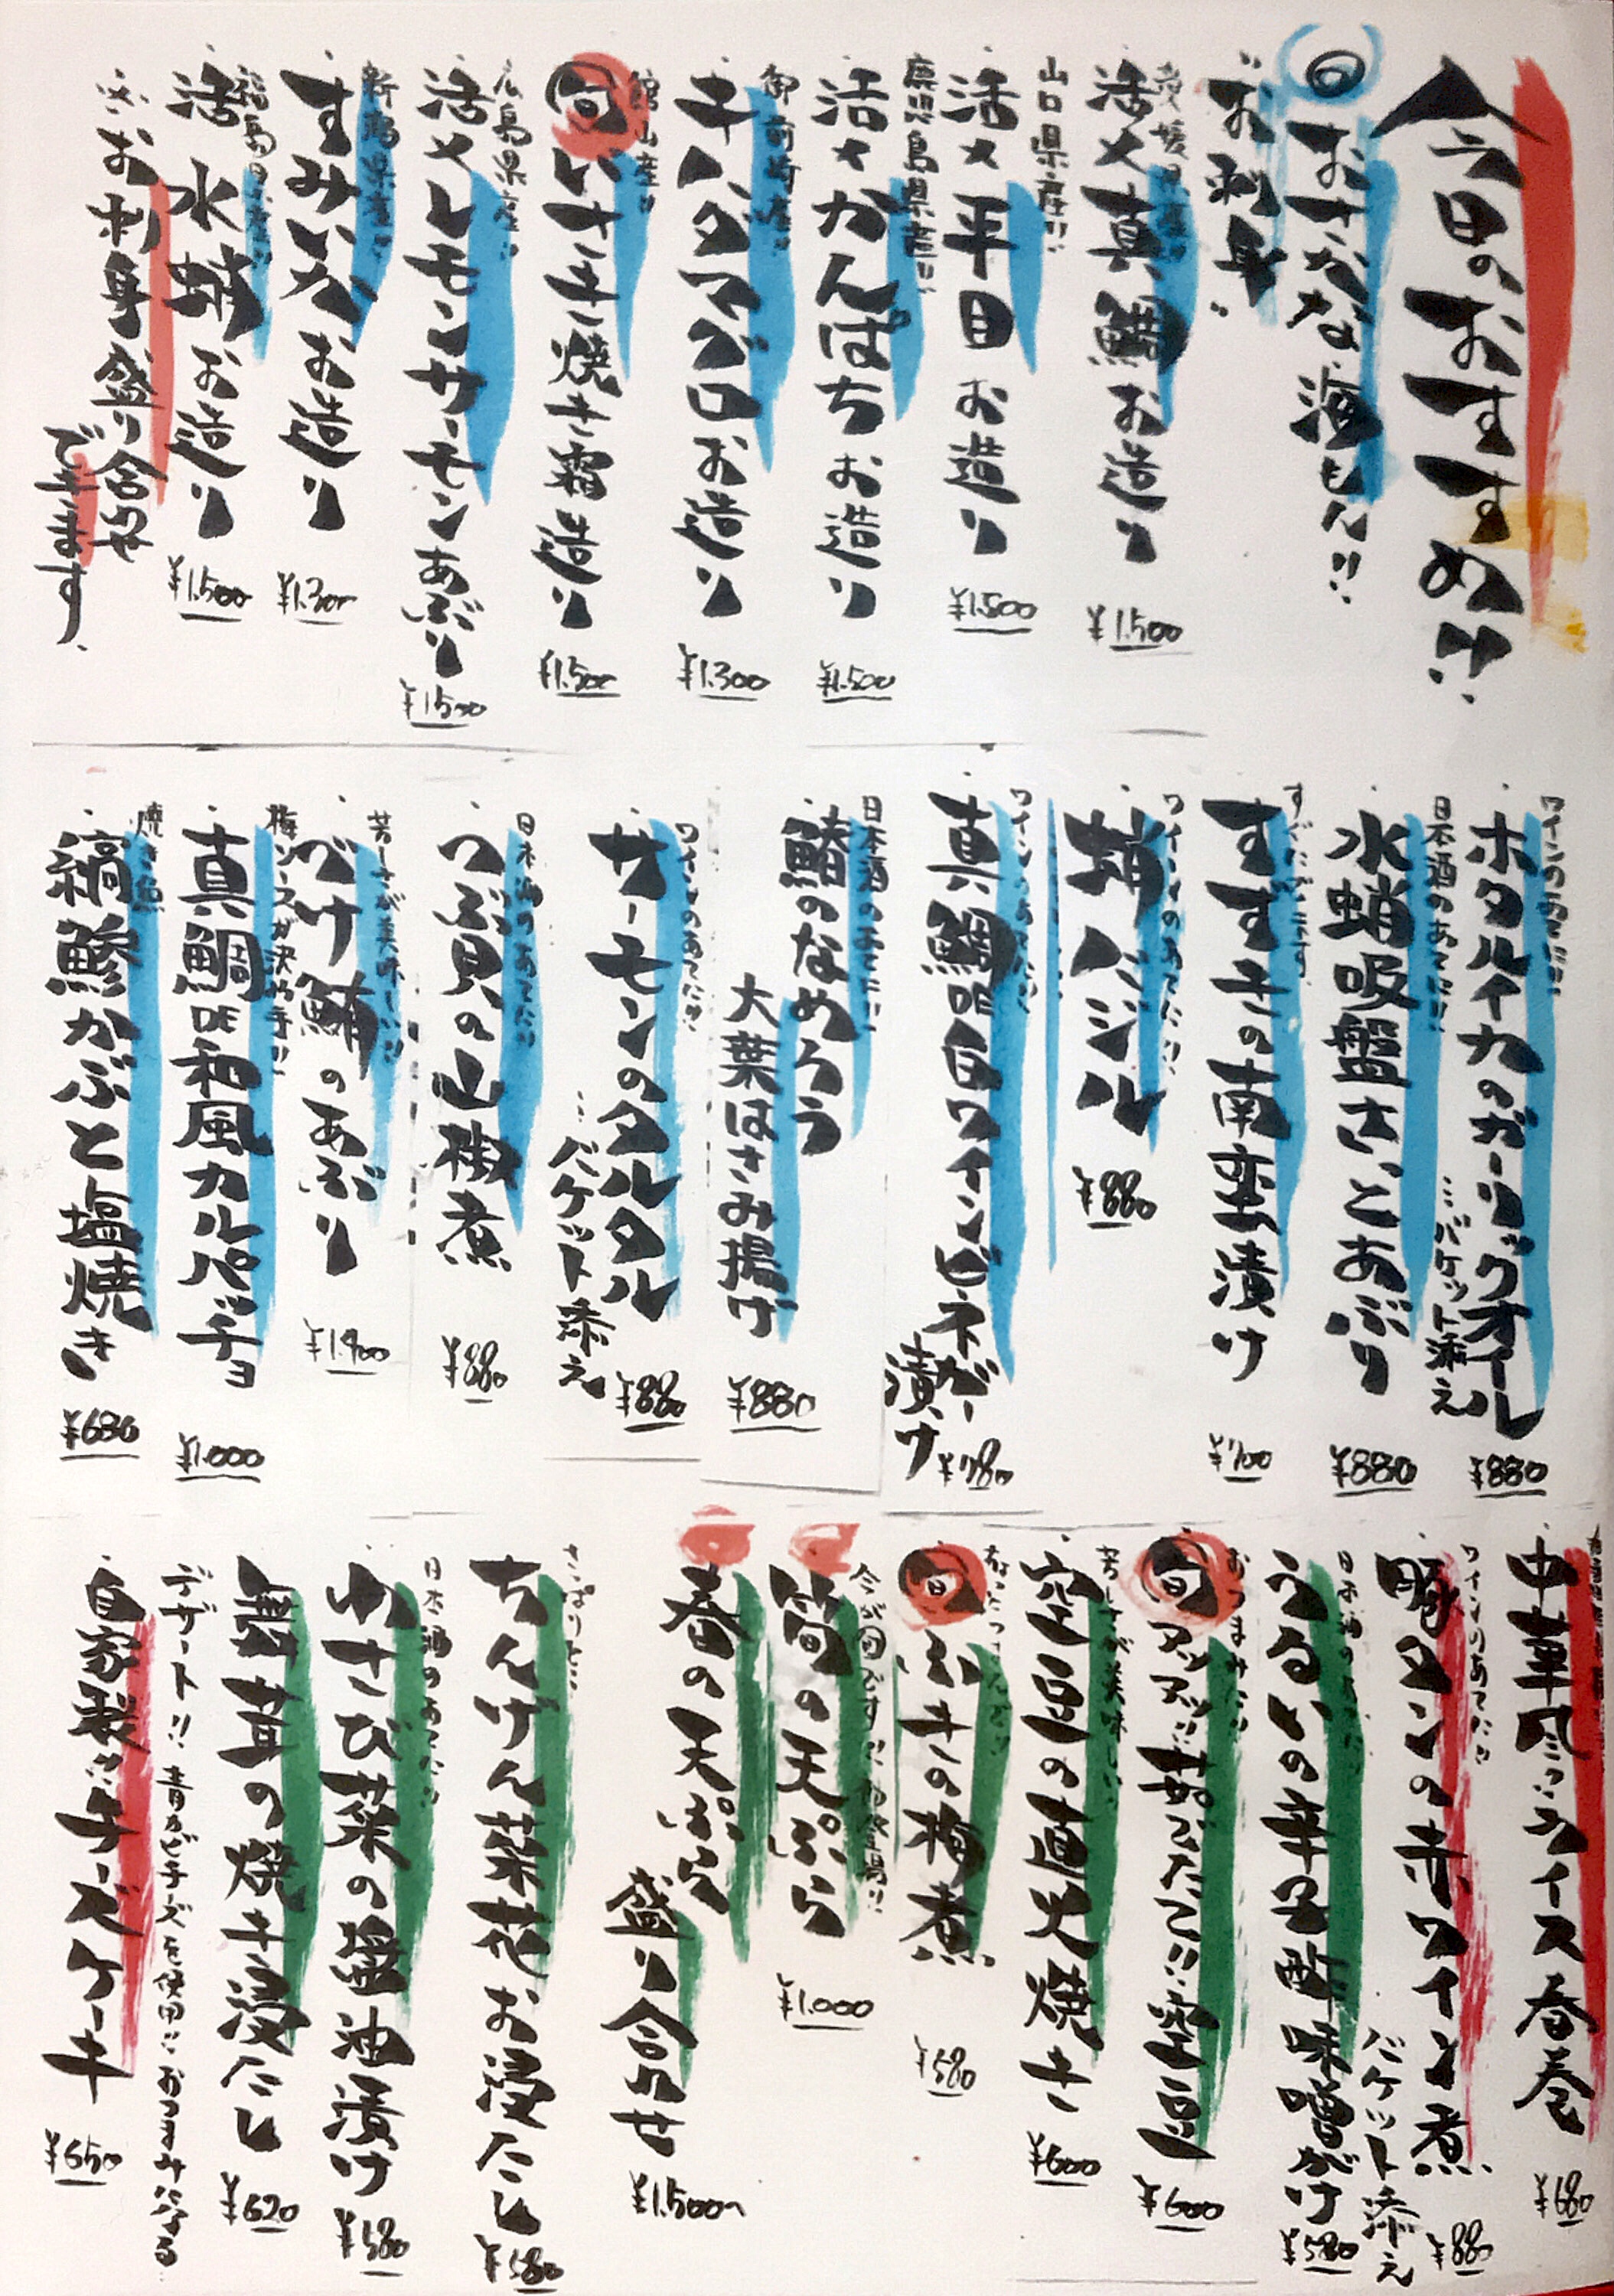 今日のおすすめ!!
旬おさかな満もん!!
お刺身
愛媛県産!!
活〆真鯛お造り
¥1.500
山口県産!!
活〆平目お造り
¥1.500
鹿児島県産!!
活〆かんぱちお造り
¥1.500
御前崎産!!
キハダマグロお造り
¥1.300
館山産!!
旬いさき焼き霜造り
¥1.500
広島県産!!
活〆レモンサーモンあぶり
¥1500
新潟県産!!
すみいかお造り
¥1.300
福島県産!!
活水蛸お造り
¥1.500
お刺身盛り合わせ
できます。
ワインのあてに!!
ホタルイカのガーリックオイル
…バケット添え
¥880
日本酒のあてに!!
水蛸吸盤さっとあぶり
¥880
すぐにでます。
すずきの南蛮漬け
¥700
ワインのあてに!!
蛸バジル
¥880
ワインのあてに!!
真鯛白ワインビネガー漬け
¥780
日本酒のあてに!!
鯵のなめろう
大葉はさみ揚げ
¥880
ワインのあてに!!
サーモンのタルタル
…バケット添え
¥880
日本酒のあてに!!
つぶ貝の山椒煮
¥880
づけ鮪のあぶり
¥1.400
梅ソースが決め手!!
真鯛和風カルパッチョ
¥1.000
焼き魚
縞鯵かぶと塩焼き
¥680
中華風フライス春巻
¥680
ワインのあてに!!
鴨タンの赤ワイン煮
バケット添え
¥880
日本酒のあてに!!
うるいの辛子酢味噌がけ
¥580
おつまみに!!
旬アツアツ茹でたて!!空豆
¥600
空豆の直火焼き
¥600
旬ふきの梅煮
¥580
今が旬です!!
筍の天ぷら
¥1.000
春の天ぷら
盛り合せ
¥1.500〜
さっぱりと…
ちんげん菜花お浸し
¥580
日本酒のあてに!!
わさび菜の塩油漬け
¥580
舞茸の焼き浸たし
¥620
デザート!! 青カビチーズを使用!! おつまみになる
自家製!!チーズケーキ
¥650